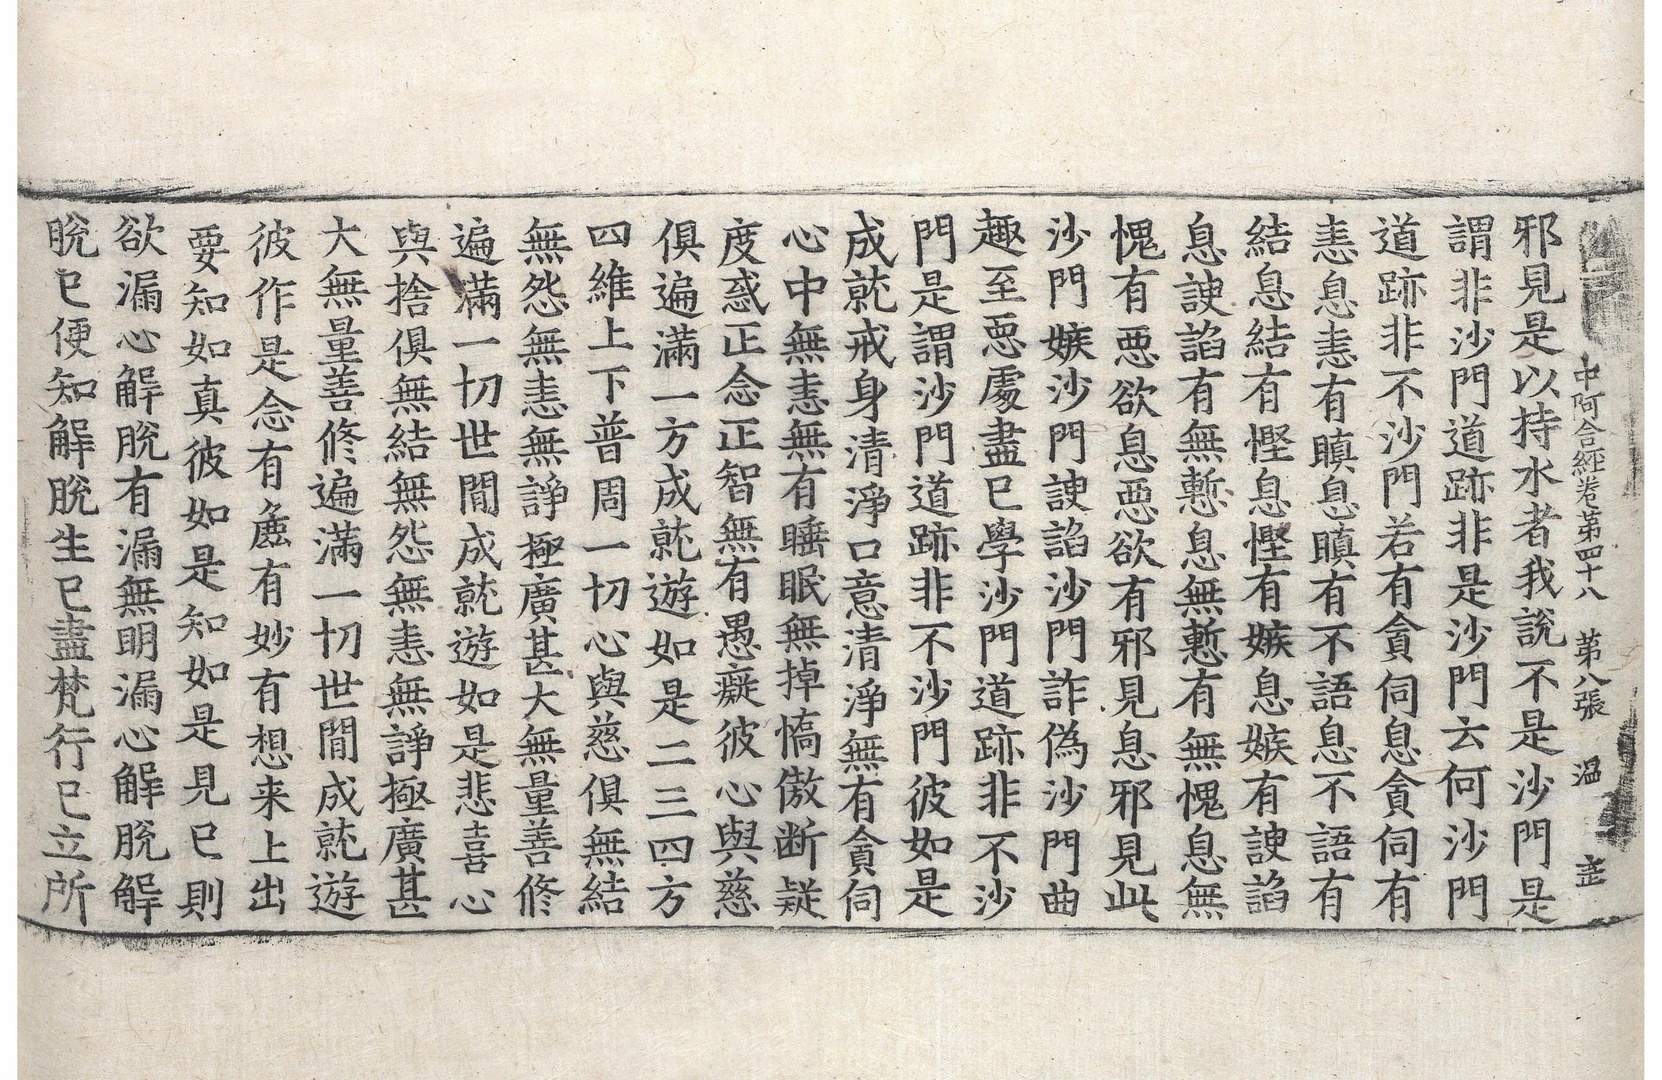 中阿含經卷第四十八 第八張 溫
邪見是以持水者我說不是沙門是
謂非沙門道跡非是沙門云何沙門
道跡非不沙門若有貪伺息貪伺有
恚息恚有瞋息瞋有不語息不語有
結息結有慳息慳有嫉息嫉有諛諂
息諛諂有無慙息無慙有無愧息無
愧有惡欲息惡欲有邪見息邪見此
沙門嫉沙門諛諂沙門詐偽沙門曲
趣至惡處盡已學沙門道跡非不沙
門是謂沙門道跡非不沙門彼如是
成就戒身清淨口意清淨無有貪伺
心中無恚無有睡眠無掉憍傲断疑
度惑正念正智無有愚癡彼心與慈
俱遍滿一方成就遊如是二三四方
四維上下普周一切心與慈俱無結
無怨無恚無諍極廣甚大無量善修
遍滿一切世間成就遊如是悲喜心
與捨俱無結無怨無恚無諍極廣甚
大無量善修遍滿一切世間成就遊
彼作是念有麁有妙有想来上出
要知如真彼如是知如是見已則
欲漏心解脫有漏無明漏心解脫解
脫已便知解脫生已盡梵行已立所